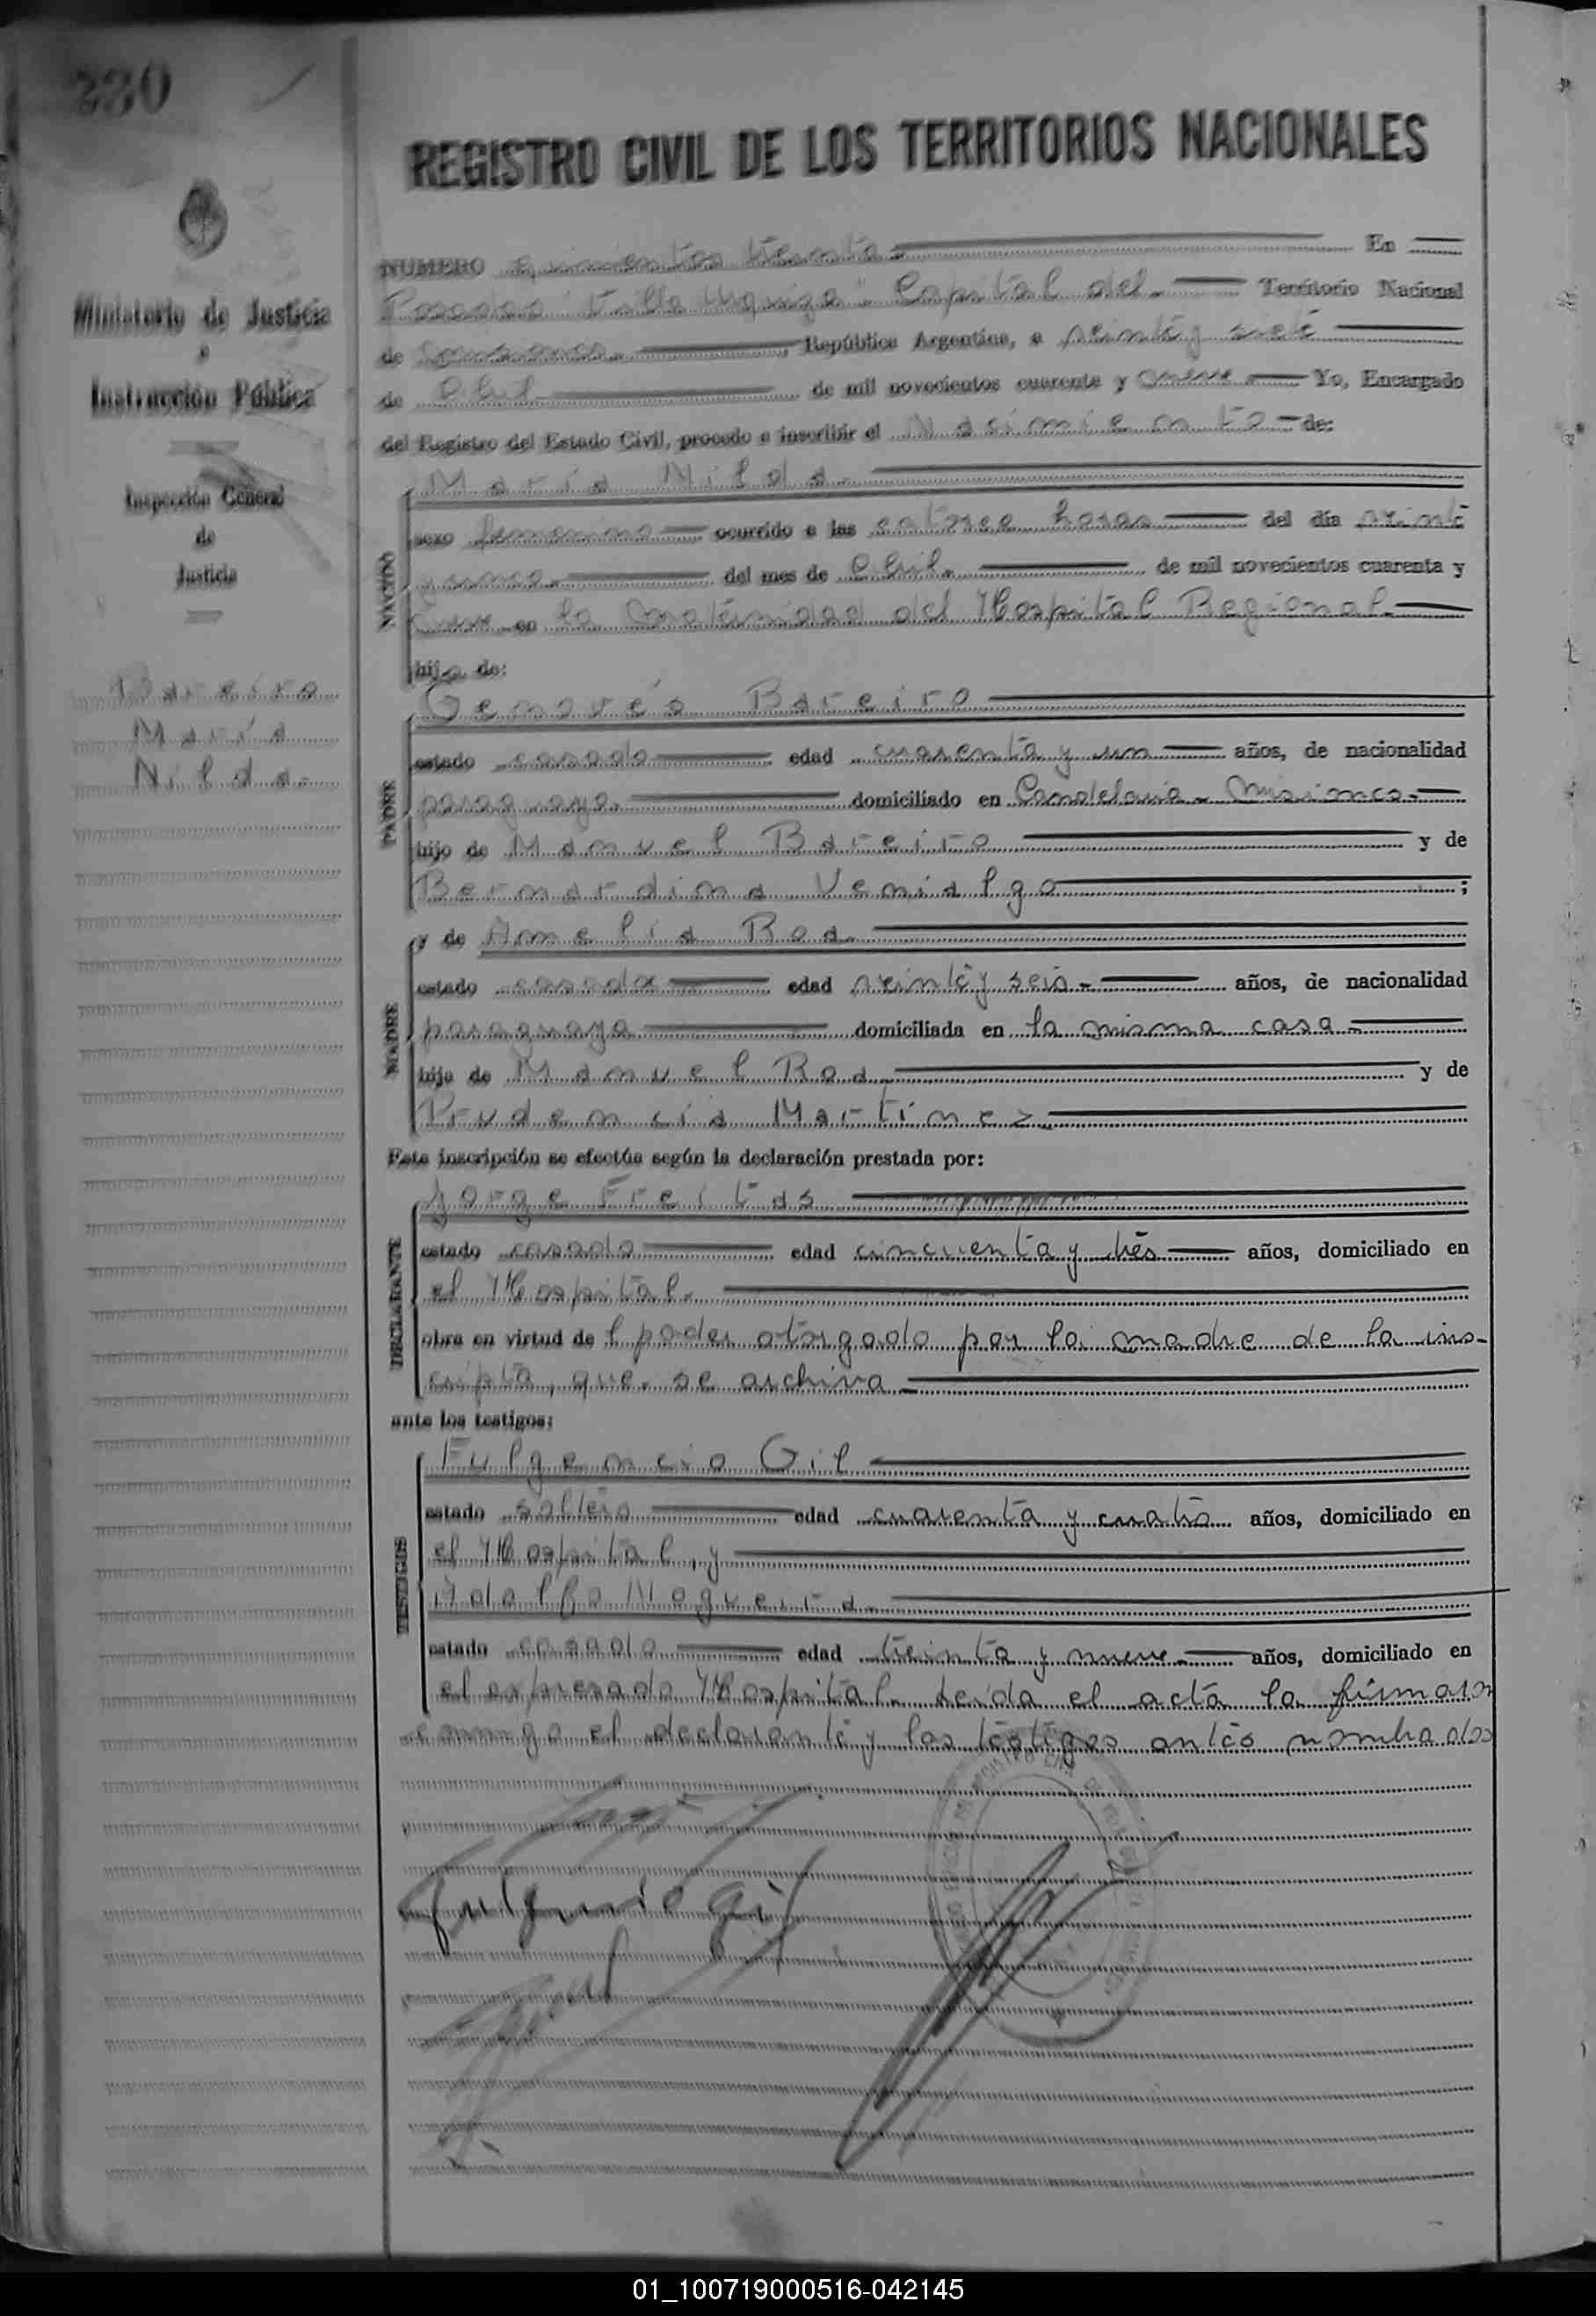 230
REGISTRO CIVIL DE LOS TERRITORIOS NACIONALES
Ministerio de Justicia
e
Instrucción Pública
Inspección General
de
Justicia
Bareiro
María
Nilda.
NUMERO quinientos treinta. En
Posadas "Villa Urquiza" Capital del. Territorio Nacional
de Misiones. República Argentina, a veinte y siete
de Abril de mil novecientos cuarenta y nueve Yo, Encargado
del Registro del Estado Civil, procedo a inscribir el Nasimiento de:
NACIDO
María Nilda.
sexo femenino ocurrido a las catorce horas del día veinte
y cinco. del mes de Abril. de mil novecientos cuarenta y
nueve en la Maternidad del Hospital Regional.
hija de:
PADRE
Genovés Bareiro
estado casado edad cuarenta y un años, de nacionalidad
paraguaya. domiciliado en Candelaria - Misiones.
hijo de Manuel Bareiro y de
Bernardina Venialgo ;
MADRE
y de Amelia Roa.
estado casada edad veinte y seis. años, de nacionalidad
paraguaya domiciliada en la misma casa
hija de Manuel Roa. y de
Prudencia Martinez.
Esta inscripción se efectúa según la declaración prestada por:
DECLARANTE
Jorge Freitas
estado casado edad cincuenta y tres años, domiciliado en
el Hospital.
obra en virtud del poder otorgado por la madre de la ins-
cripta, que se archiva.
ante los testigos:
TESTIGOS
Fulgencio Gil
estado soltero edad cuarenta y cuatro años, domiciliado en
el Hospital, y
Adolfo Nogueira.
estado casado edad treinta y nueve. años, domiciliado en
el expresado Hospital. Leida el acta la firmaron
conmigo el declarante y los testigos antes nombrados
Fulgencio Gil
01_100719000516-042145